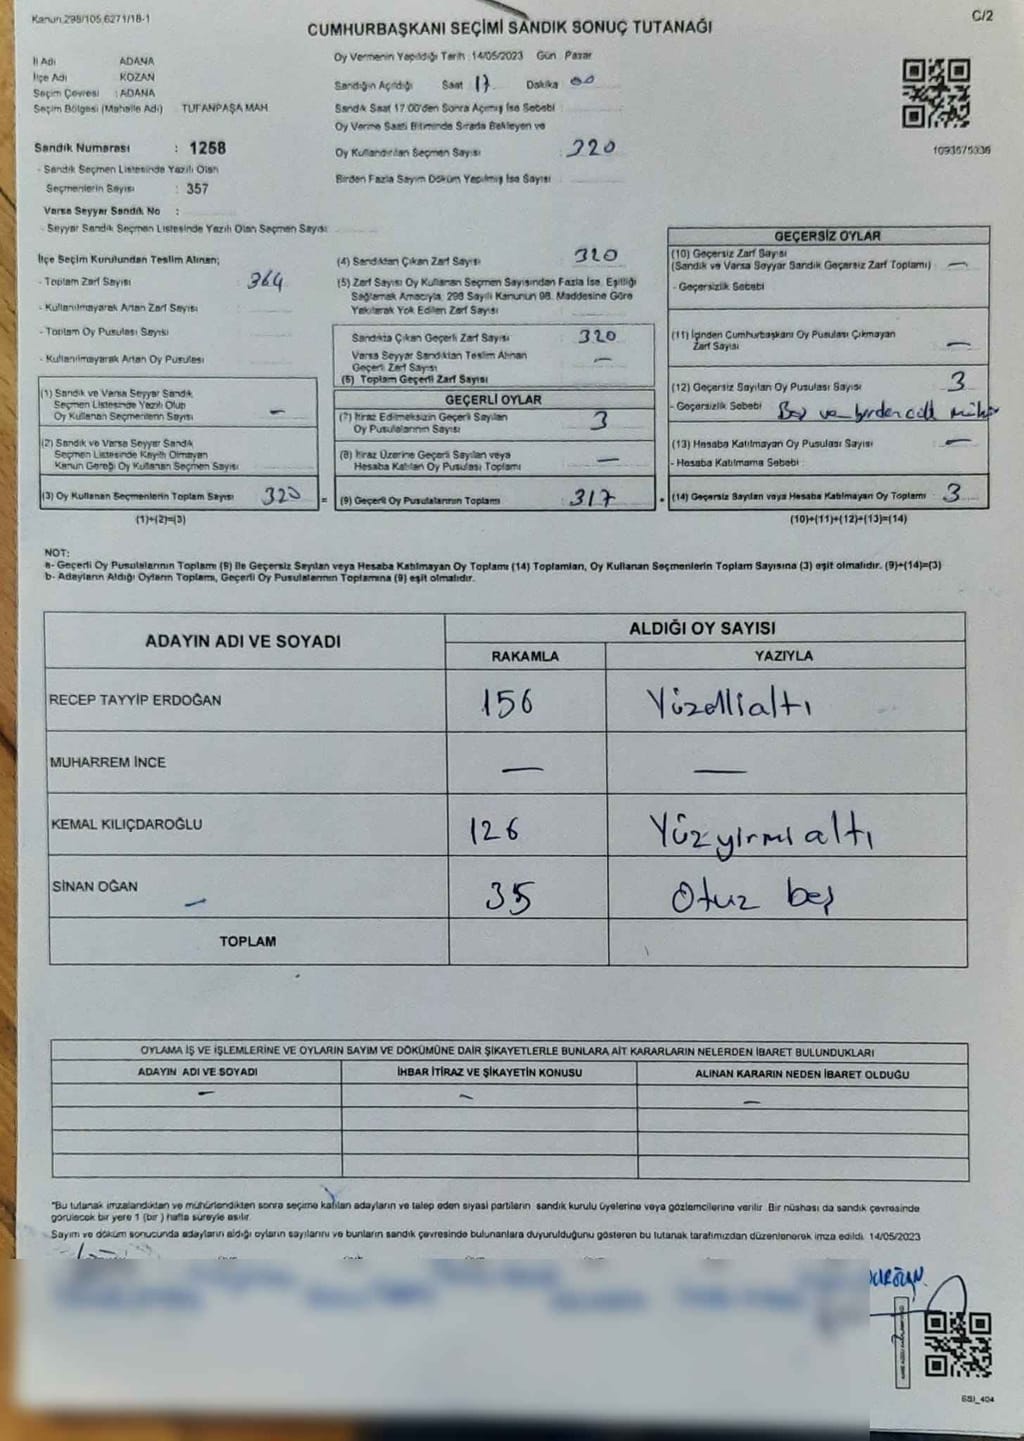 Kanun.298/105,6271/18-1
C/2
CUMHURBAŞKANI SEÇİMİ SANDIK SONUÇ TUTANAĞI
İl Adı ADANA
İlçe Adı KOZAN
Seçim Çevresi : ADANA
Seçim Bölgesi (Mahalle Adı) TUFANPAŞA MAH
Sandık Numarası : 1258
- Sandık Seçmen Listesinde Yazılı Olan
Seçmenlerin Sayısı : 357
Varsa Seyyar Sandık No :
- Seyyar Sandık Seçmen Listesinde Yazılı Olan Seçmen Sayısı
Oy Vermenin Yapıldığı Tarih : 14/05/2023 Gün Pazar
Sandığın Açıldığı Saat 17 Dakika 00
Sandık Saat 17:00'den Sonra Açımış İse Sebebi
Oy Verme Saati Bitiminde Sırada Bekleyen ve
Oy Kullandırılan Seçmen Sayısı : 320
Birden Fazla Sayım Döküm Yapılmış İse Sayısı
1093675336
İlçe Seçim Kurulundan Teslim Alınan;
- Toplam Zarf Sayısı 364
- Kullanılmayarak Artan Zarf Sayısı
- Toplam Oy Pusulası Sayısı
- Kullanılmayarak Artan Oy Pusulası
(1) Sandık ve Varsa Seyyar Sandık
Seçmen Listesinde Yazılı Olup
Oy Kullanan Seçmenlerin Sayısı –
(2) Sandık ve Varsa Seyyar Sandık
Seçmen Listesinde Kayıtlı Olmayan
Kanun Gereği Oy Kullanan Seçmen Sayısı
(3) Oy Kullanan Seçmenlerin Toplam Sayısı 320 =
(1)+(2)=(3)
(4) Sandıktan Çıkan Zarf Sayısı 320
(5) Zarf Sayısı Oy Kullanan Seçmen Sayısından Fazla İse, Eşitliği
Sağlamak Amacıyla, 298 Sayılı Kanunun 98. Maddesine Göre
Yakılarak Yok Edilen Zarf Sayısı
Sandıkta Çıkan Geçerli Zarf Sayısı 320
Varsa Seyyar Sandıktan Teslim Alınan
Geçerli Zarf Sayısı –
(6) Toplam Geçerli Zarf Sayısı
GEÇERLİ OYLAR
(7) İtiraz Edilmeksizin Geçerli Sayılan
Oy Pusulalarının Sayısı 3
(8) İtiraz Üzerine Geçerli Sayılan veya
Hesaba Katılan Oy Pusulası Toplamı –
(9) Geçerli Oy Pusulalarının Toplamı : 317 +
GEÇERSİZ OYLAR
(10) Geçersiz Zarf Sayısı
(Sandık ve Varsa Seyyar Sandık Geçersiz Zarf Toplamı) –
- Geçersizlik Sebebi
(11) İçinden Cumhurbaşkanı Oy Pusulası Çıkmayan
Zarf Sayısı –
(12) Geçersiz Sayılan Oy Pusulası Sayısı 3
- Geçersizlik Sebebi Boş ve birden çok mühür
(13) Hesaba Katılmayan Oy Pusulası Sayısı –
- Hesaba Katılmama Sebebi
(14) Geçersiz Sayılan veya Hesaba Katılmayan Oy Toplamı : 3
(10)+(11)+(12)+(13)=(14)
NOT:
a- Geçerli Oy Pusulalarının Toplamı (9) İle Geçersiz Sayılan veya Hesaba Katılmayan Oy Toplamı (14) Toplamları, Oy Kullanan Seçmenlerin Toplam Sayısına (3) eşit olmalıdır. (9)+(14)=(3)
b- Adayların Aldığı Oyların Toplamı, Geçerli Oy Pusulalarının Toplamına (9) eşit olmalıdır.
ADAYIN ADI VE SOYADI ALDIĞI OY SAYISI
RAKAMLA YAZIYLA
RECEP TAYYİP ERDOĞAN 156 Yüzelli altı
MUHARREM İNCE – –
KEMAL KILIÇDAROĞLU 126 Yüz yirmi altı
SİNAN OĞAN – 35 Otuz beş
TOPLAM
OYLAMA İŞ VE İŞLEMLERİNE VE OYLARIN SAYIM VE DÖKÜMÜNE DAİR ŞİKAYETLERLE BUNLARA AİT KARARLARIN NELERDEN İBARET BULUNDUKLARI
ADAYIN ADI VE SOYADI İHBAR İTİRAZ VE ŞİKAYETİN KONUSU ALINAN KARARIN NEDEN İBARET OLDUĞU
– – –
*Bu tutanak imzalandıktan ve mühürlendikten sonra seçime katılan adayların ve talep eden siyasi partilerin sandık kurulu üyelerine veya gözlemcilerine verilir. Bir nüshası da sandık çevresinde
görülecek bir yere 1 (bir) hafta süreyle asılır.
Sayım ve döküm sonucunda adayların aldığı oyların sayılarını ve bunların sandık çevresinde bulunanlara duyurulduğunu gösteren bu tutanak tarafımızdan düzenlenerek imza edildi. 14/05/2023
SSI_404